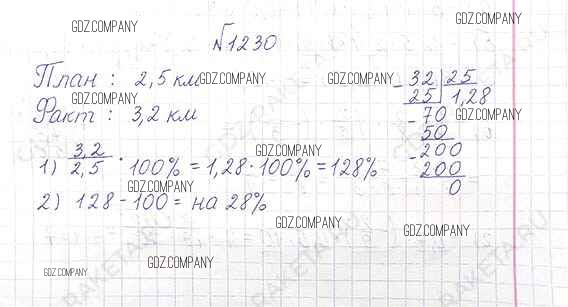 GDZ.COMPANY
GDZ.COMPANY
№1230
План : 2,5 км GDZ.COMPANY
GDZ.COMPANY
Факт : 3,2 км
GDZ.COMPANY
32 | 25
- 25 | 1,28
- 70 GDZ.COMPANY
50
- 200
200
0
GDZ.COMPANY
1) 3,2/2,5 · 100% = 1,28 · 100% = 128%
GDZ.COMPANY
2) 128 - 100 = на 28%
GDZ.COMPANY
GDZ.COMPANY
GDZ.COMPANY
GDZ.COMPANY
RAKETA.RU
RAKETA.RU